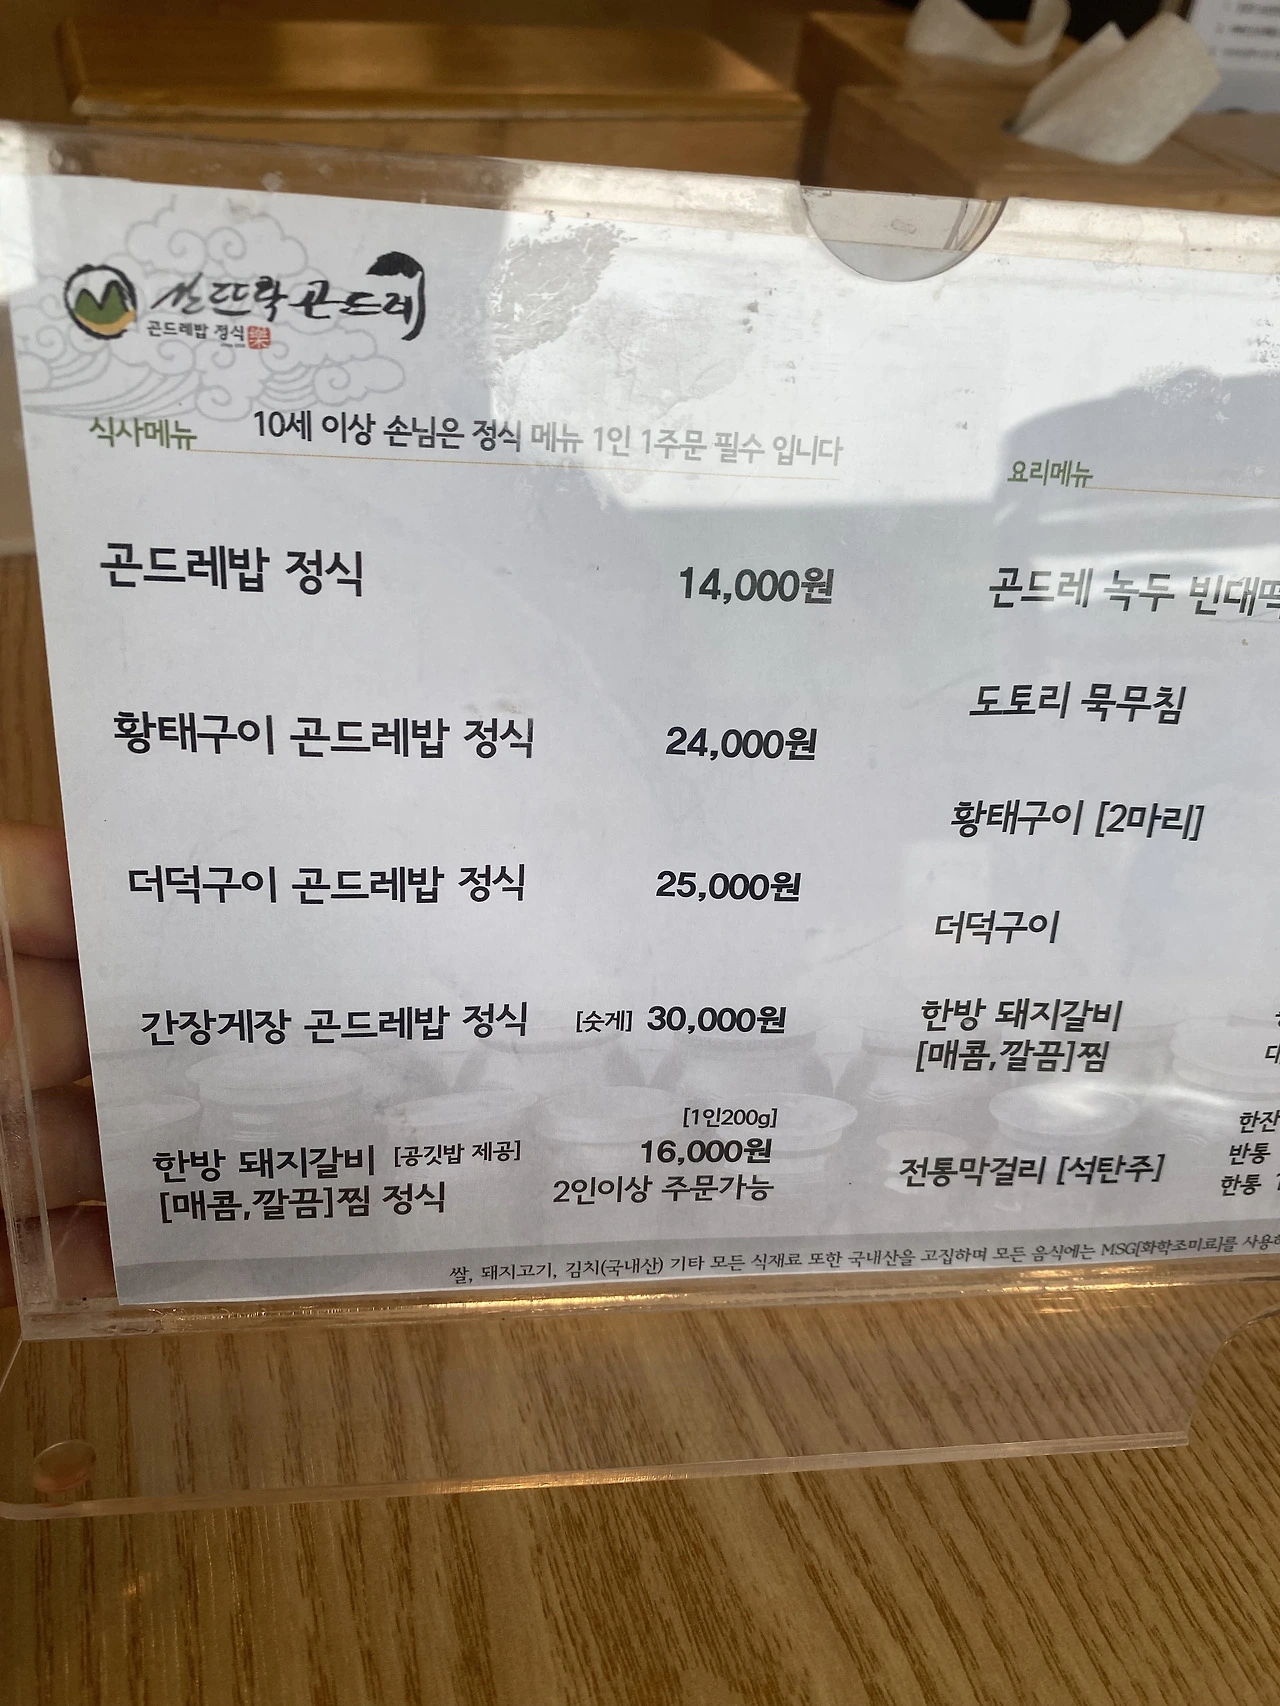 산뜨락 곤드레
곤드레밥 정식
식사메뉴 10세 이상 손님은 정식 메뉴 1인 1주문 필수 입니다
곤드레밥 정식 14,000원
황태구이 곤드레밥 정식 24,000원
더덕구이 곤드레밥 정식 25,000원
간장게장 곤드레밥 정식 [숫게] 30,000원
[1인200g]
한방 돼지갈비 [공깃밥 제공] 16,000원
[매콤,깔끔]찜 정식 2인이상 주문가능
요리메뉴
곤드레 녹두 빈대떡
도토리 묵무침
황태구이 [2마리]
더덕구이
한방 돼지갈비
[매콤,깔끔]찜
한잔
전통막걸리 [석탄주] 반통
한통
쌀, 돼지고기, 김치(국내산) 기타 모든 식재료 또한 국내산을 고집하며 모든 음식에는 MSG[화학조미료]를